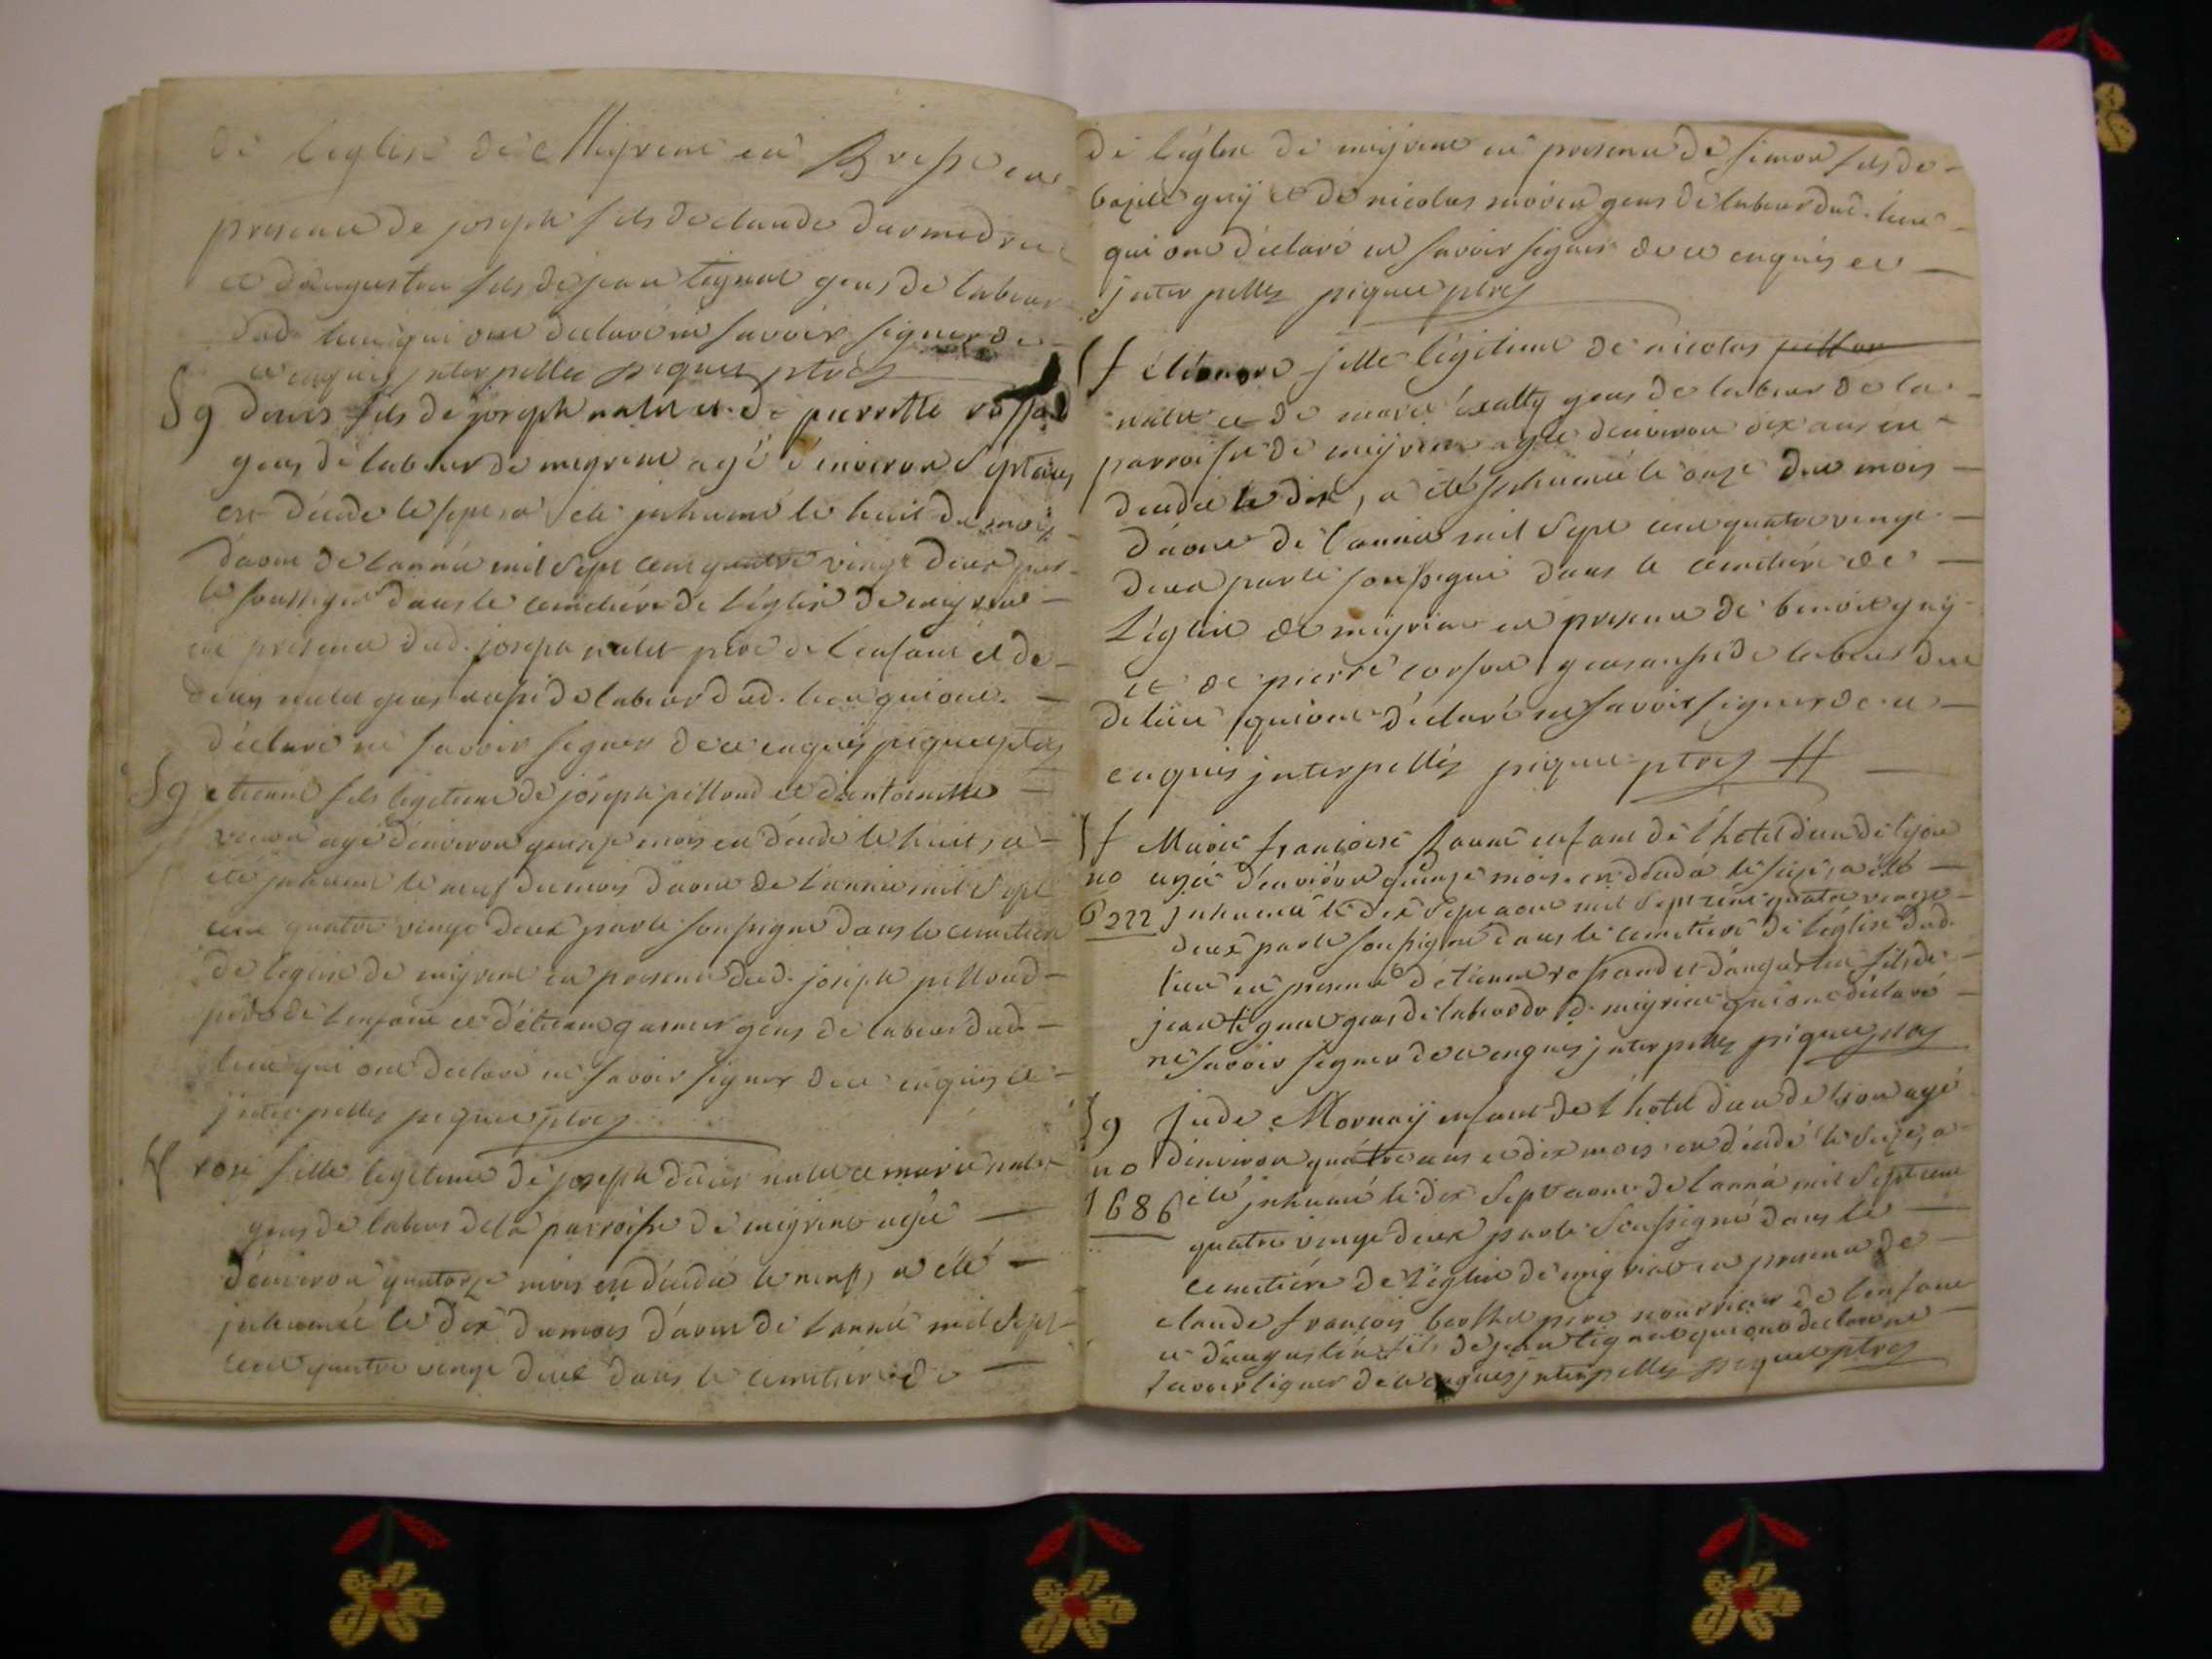 de léglise de Meyriat en Bresse en
presence de joseph fils de claude
et d'augustin fils de jean tignat gens de labeur
dud. lieu qui ont declaré ne savoir signer de
ce enquis interpellés piquet ptre
Sg denis fils de joseph nalet et de pierrette
gens de labeur de meyriat agé d'environ sept ans
est décédé le sept, a été inhumé le huit du mois
d'aout de l'année mil sept cent quatre vingt deux par
le soussigné dans le cimetière de l'église de meyriat
en presence dud. joseph nalet père de l'enfant et de
denis nalet gens aussi de labeur dud. lieu qui ont
déclaré ne savoir signer de ce enquis piquet ptre
Sg etienne fils legitime de joseph pilloud et d'antoinette
agé d'environ quinze mois est décédé le huit, a
été inhumé le neuf du mois d'aout de l'année mil sept
cent quatre vingt deux par le soussigné dans le cimetière
de l'eglise de meyriat en presence dud. joseph pilloud
père de l'enfant et d'étienne gens de labeur dud.
lieu qui ont declaré ne savoir signer de ce enquis et
interpellés piquet ptre
Sf rose fille legitime de joseph nalet et marie
gens de labeur de la parroisse de meyriat agée
d'environ quatorze mois est décédée le neuf, a été
inhumée le dix du mois d'aout de l'année mil sept
cent quatre vingt deux dans le cimetière de
de l'église de meyriat en presence de simon fils de
guÿ et de nicolas gens de labeur dud. lieu
qui ont déclaré ne savoir signer de ce enquis et
interpellés piquet ptre
Sf éléonore fille légitime de nicolas
nalet et de marie gens de labeur de la
parroisse de meyriat agée d'environ dix ans est
décédée le dix, a été inhumée le onze du mois
d'aout de l'année mil sept cent quatre vingt
deux par le soussigné dans le cimetière de
l'église de meyriat en presence de benoit guÿ
et de pierre gens aussi de labeur du
dt lieu qui ont déclaré ne savoir signer de ce
enquis interpellés piquet ptre
Sf Marie françoise enfant de l'hotel dieu de lyon
no agée d'environ quinze mois est décédée le seize, a été
6222 inhumée le dix sept aout mil sept cent quatre vingt
deux par le soussigné dans le cimetière de l'église dud.
lieu en presence d'etienne et d'augustin fils de
jean tignat gens de labeur de meyriat qui ont déclaré
ne savoir signer de ce enquis interpellés piquet ptre
Sg jude Mornaÿ enfant de l'hotel dieu de lyon agé
no d'environ quatre ans et dix mois est décédé le seize, a
1686 été inhumé le dix sept aout de l'année mil sept cent
quatre vingt deux par le soussigné dans le
cimetière de l'église de meyriat en presence de
claude françois berthet pere nourricier de l'enfant
et d'augustin fils de jean tignat qui ont declaré ne
savoir signer de ce enquis interpellés piquet ptre